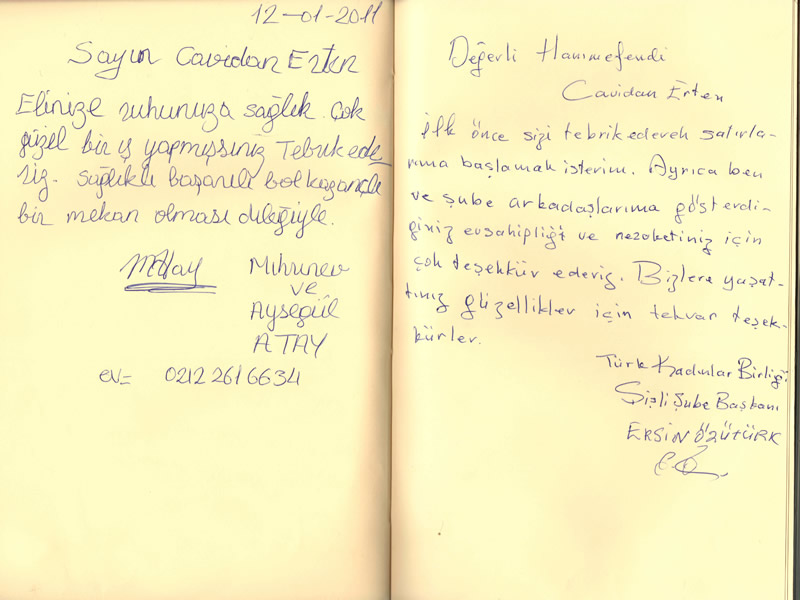 12-01-2011
Sayın Cavidan Erten
Elinize ruhunuza sağlık. Çok
güzel bir iş yapmışsınız Tebrik ede
riz. Sağlıklı başarılı bol kazançlı
bir mekan olması dileğiyle.
MAtay
Mihrinev
ve
Ayşegül
ATAY
ev= 0212 261 6634
Değerli Hanımefendi
Cavidan Erten
İlk önce sizi tebrik ederek satırla-
rıma başlamak isterim. Ayrıca ben
ve şube arkadaşlarıma gösterdi-
ğiniz evsahipliği ve nezaketiniz için
çok teşekkür ederiz. Bizlere yaşat-
tınız güzellikler için tekrar teşek-
kürler.
Türk Kadınlar Birliği
Şişli Şube Başkanı
ERSİN ÖZÜTÜRK